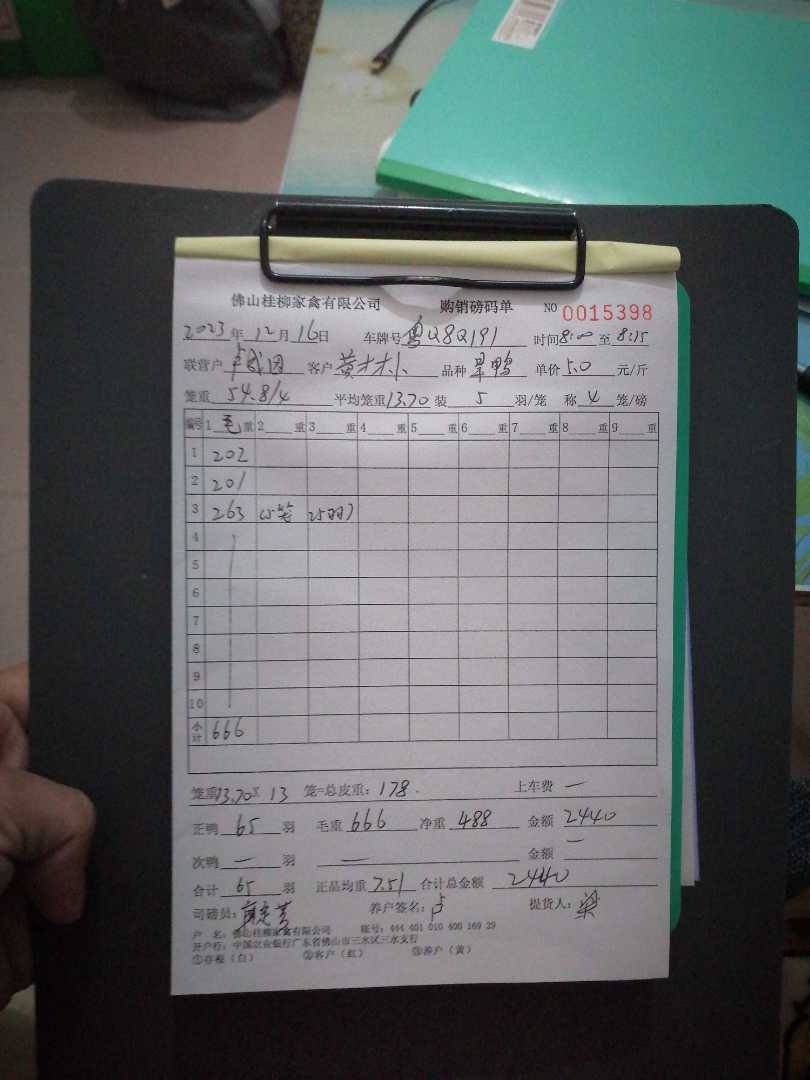 佛山桂柳家禽有限公司 购销磅码单 NO 0015398
2023年12月16日 车牌号 粤Q8Q191 时间8:00至8:15
联营户 客户 黄木木卜 品种 旱鸭 单价 5.0 元/斤
笼重 54.8/4 平均笼重13.70 装 5 羽/笼 称 4 笼/磅
编号 1 毛 重 2 重 3 重 4 重 5 重 6 重 7 重 8 重 9 重
1 202
2 201
3 263 (5笼 25羽)
4
5
6
7
8
9
10
小计 666
笼重13.70X 13 笼=总皮重: 178. 上车费 一
正鸭 65 羽 毛重 666 净重 488 金额 2440
次鸭 一 羽 一 金额 一
合计 65 羽 正品均重 7.51 合计总金额 2440
司磅员: 养户签名: 卢 提货人: 梁
户 名: 佛山桂柳家禽有限公司 账号: 444 401 010 400 169 29
开户行: 中国农业银行广东省佛山市三水区三水支行
①存根(白) ②客户(红) ③养户(黄)